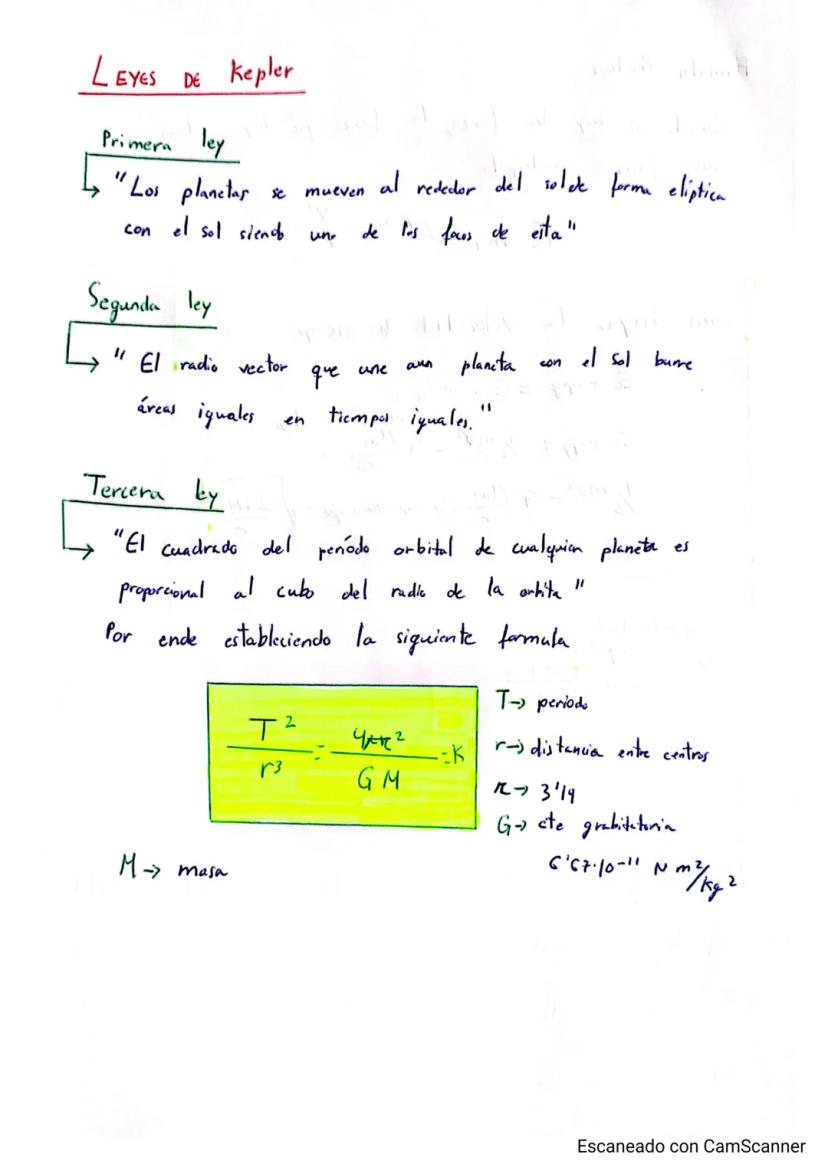 LEYES DE Kepler
Primera ley
"Los planetas se mueven al rededor del sol de forma elíptica
con el sol siendo uno de los focos de esta"
Segunda ley
"El radio vector que une a un planeta con el sol barre
áreas iguales en tiempos iguales."
Tercera ley
"El cuadrado del período orbital de cualquier planeta es
proporcional al cubo del radio de la orbita"
Por ende estableciendo la siguiente formula
T²/r³ = 4π²/GM = K
T→ período
r→ distancia entre centros
π→ 3'14
G→ cte grabitatoria
6'67·10⁻¹¹ N m²/kg²
M→ masa
Escaneado con CamScanner